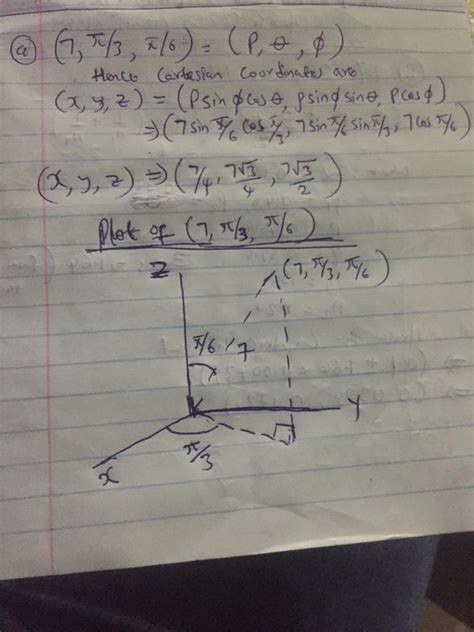 (a) (7, π/3, π/6) = (ρ, θ, φ)
Hence Cartesian Coordinates are
(x, y, z) = (ρsinφcosθ, ρsinφsinθ, ρcosφ)
⇒ (7sin π/6 cos π/3, 7sin π/6 sin π/3, 7cos π/6)
(x, y, z) ⇒ (7/4, 7√3/4, 7√3/2)
Plot of (7, π/3, π/6)
Z
(7, π/3, π/6)
π/6
7
Y
π/3
x